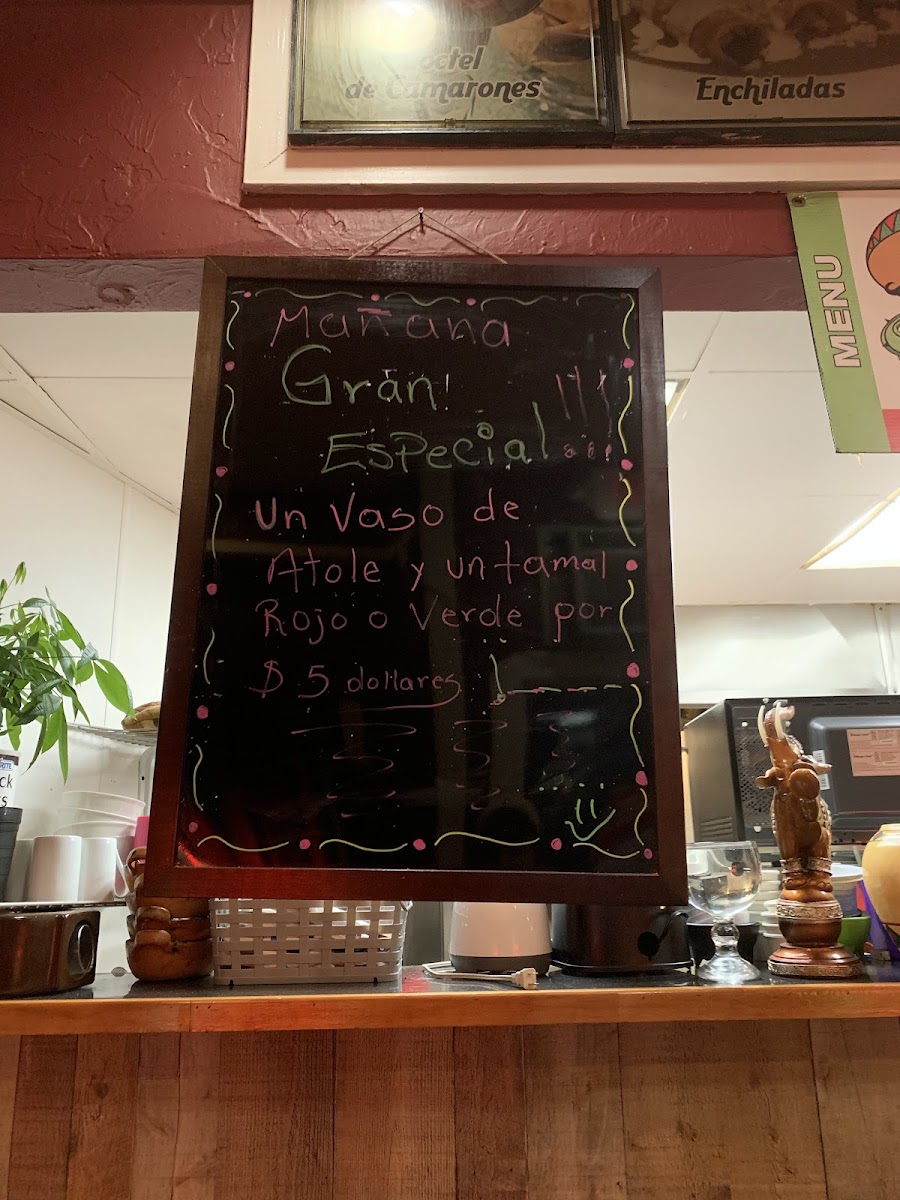 octel
de Camarones
Enchiladas
MENU
Mañana
Gran
Especial !!!
Un Vaso de
Atole y un tamal
Rojo o Verde por
$ 5 dollares